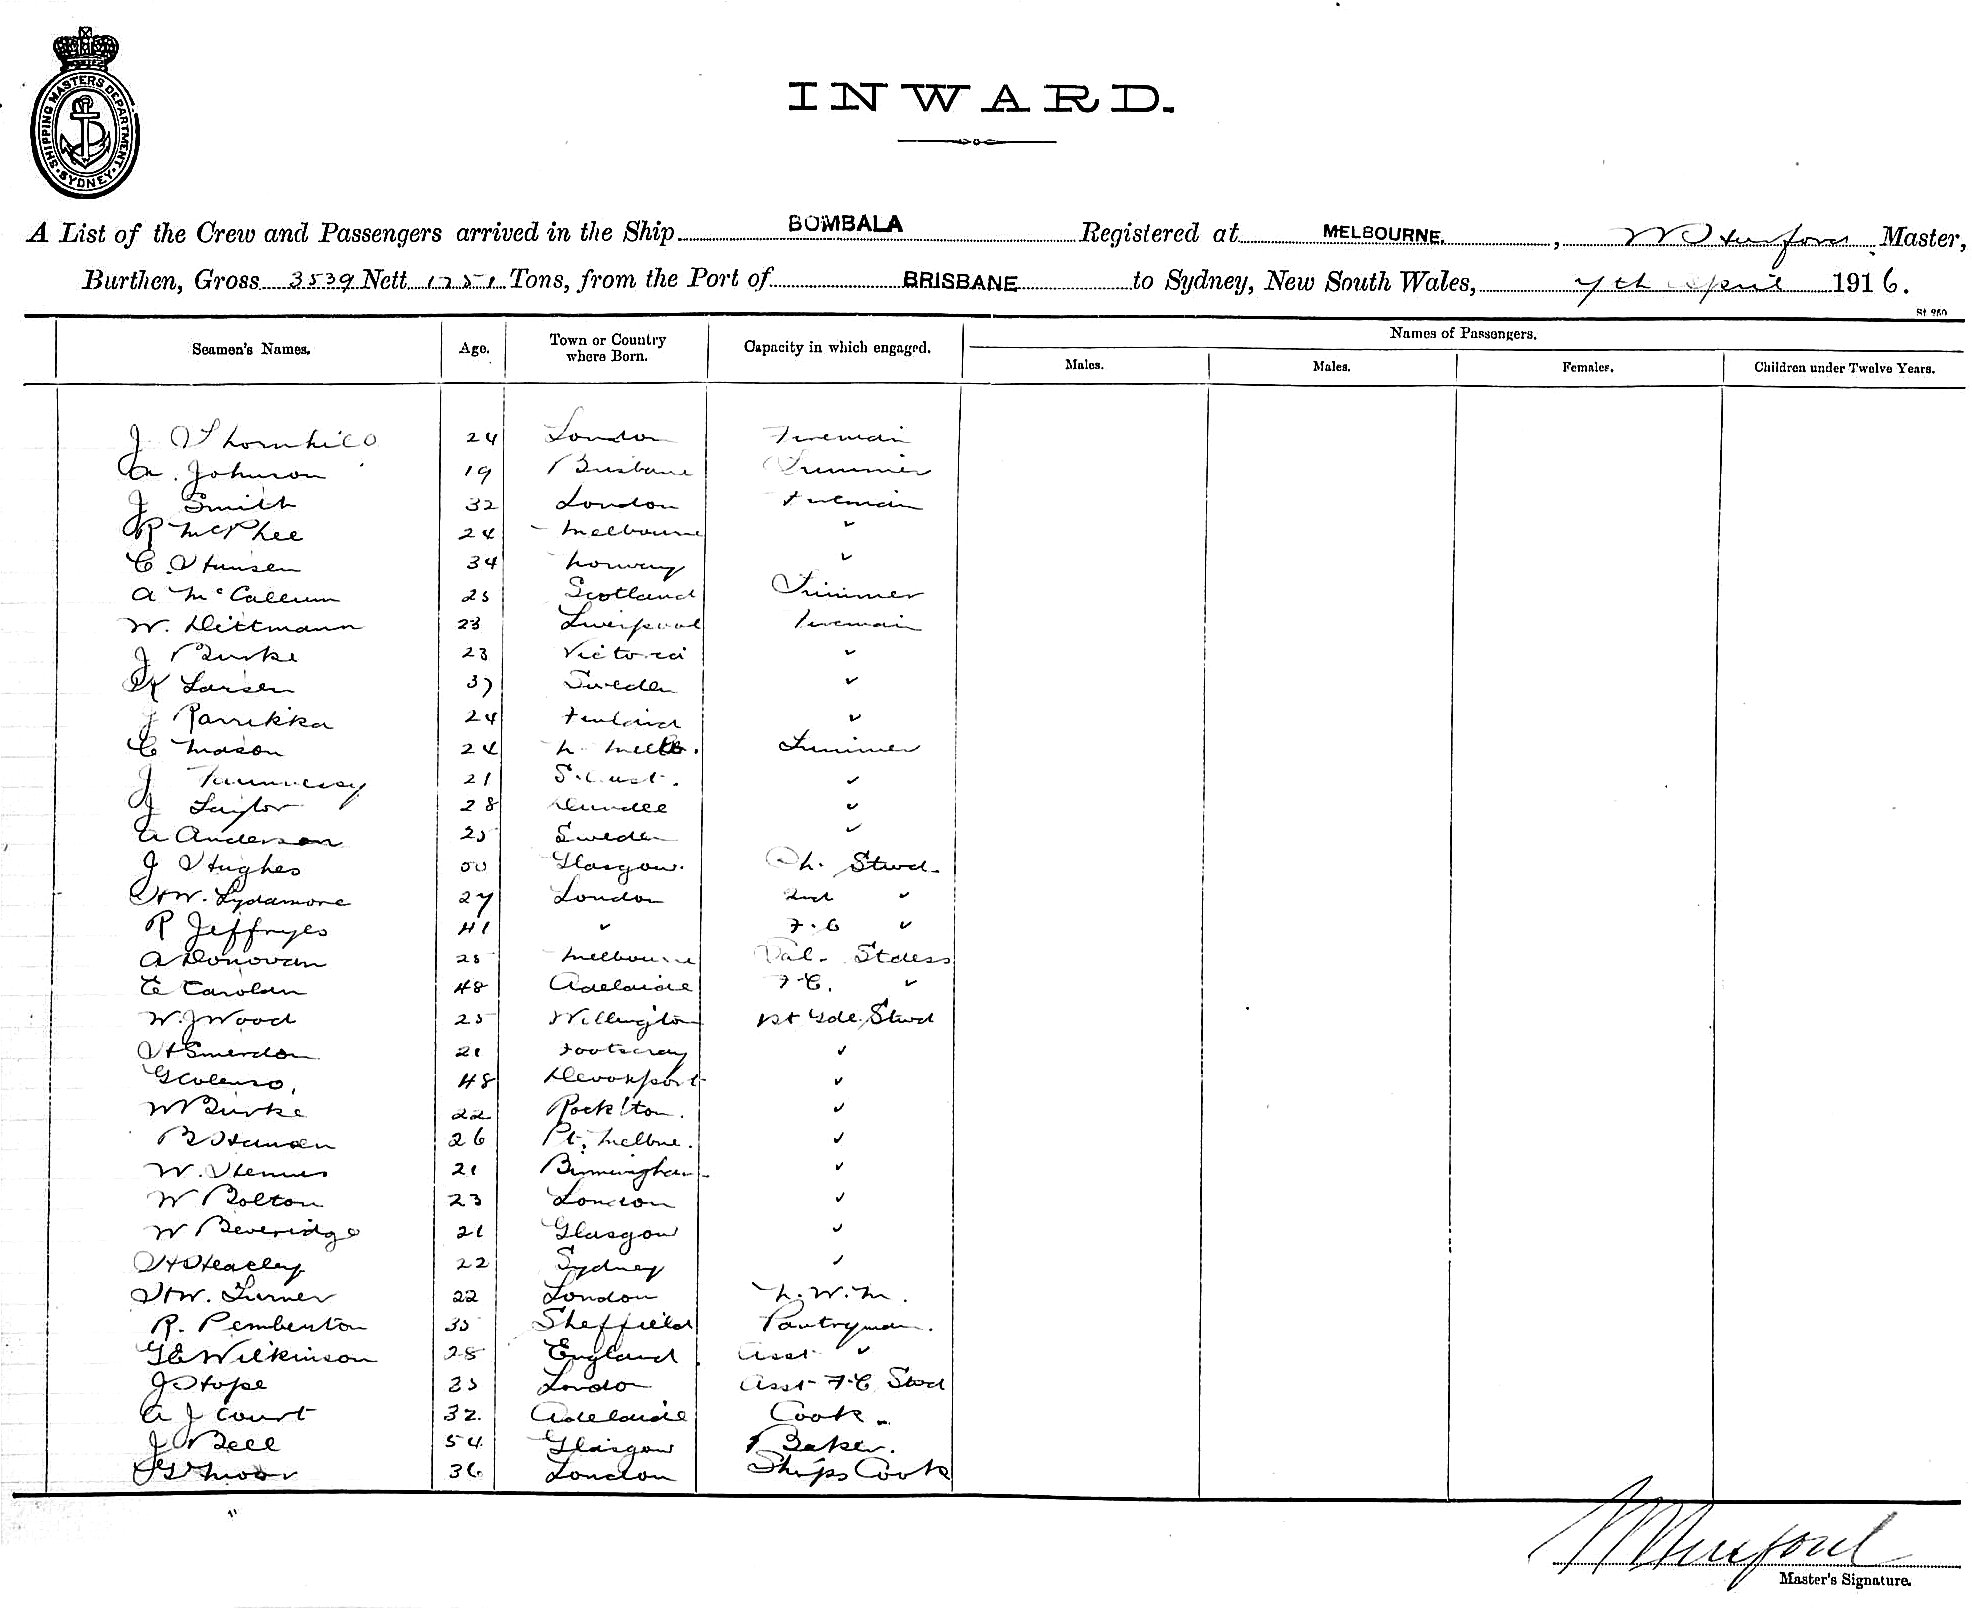 SHIPPING MASTERS DEPARTMENT
SYDNEY
INWARD.
A List of the Crew and Passengers arrived in the Ship BOMBALA Registered at MELBOURNE, Master,
Burthen, Gross 3539 Nett 1251 Tons, from the Port of BRISBANE to Sydney, New South Wales, 7th April 1916.
Seamen's Names. Age. Town or Country where Born. Capacity in which engaged. Names of Passengers.
Males. Males. Females. Children under Twelve Years.
J Thornhill 24 London Fireman
A. Johnson 19 Brisbane Trimmer
J Smith 32 London Fireman
R McPhee 24 Melbourne "
C Hansen 34 Norway "
A McCallum 25 Scotland Trimmer
W. Dittmann 23 Liverpool Fireman
J Burke 23 Victoria "
K Larsen 37 Sweden "
J 24 Finland "
C Mason 24 N. Melb. Trimmer
J 21 S. Aust. "
J Taylor 28 Dundee "
A Anderson 25 Sweden "
J Hughes 50 Glasgow. Ch. Stwd.
HW. Lydamore 27 London 2nd "
R Jeffryes 41 " F.C "
A Donovan 25 Melbourne Sal. Stdess
E Carolan 48 Adelaide F.C. "
W.J Wood 25 Wellington 1st Gde Stwd
H Smerdon 21 Footscray "
G Colenso, 48 Devonport "
W Burke 22 Rock'ton. "
B Hansen 26 Pt. Melbne. "
W. 21 Birmingham "
W Bolton 23 London "
W Beveridge 21 Glasgow "
H Heagley 22 Sydney "
HW. Turner 22 London N.W.M.
R. Pemberton 35 Sheffield Pantryman.
GE Wilkinson 28 England Asst "
J Hope 23 London Asst F.C Stwd
A J Court 32. Adelaide Cook
J Bell 54 Glasgow Baker.
G Moor 36 London Ships Cook
Master's Signature.